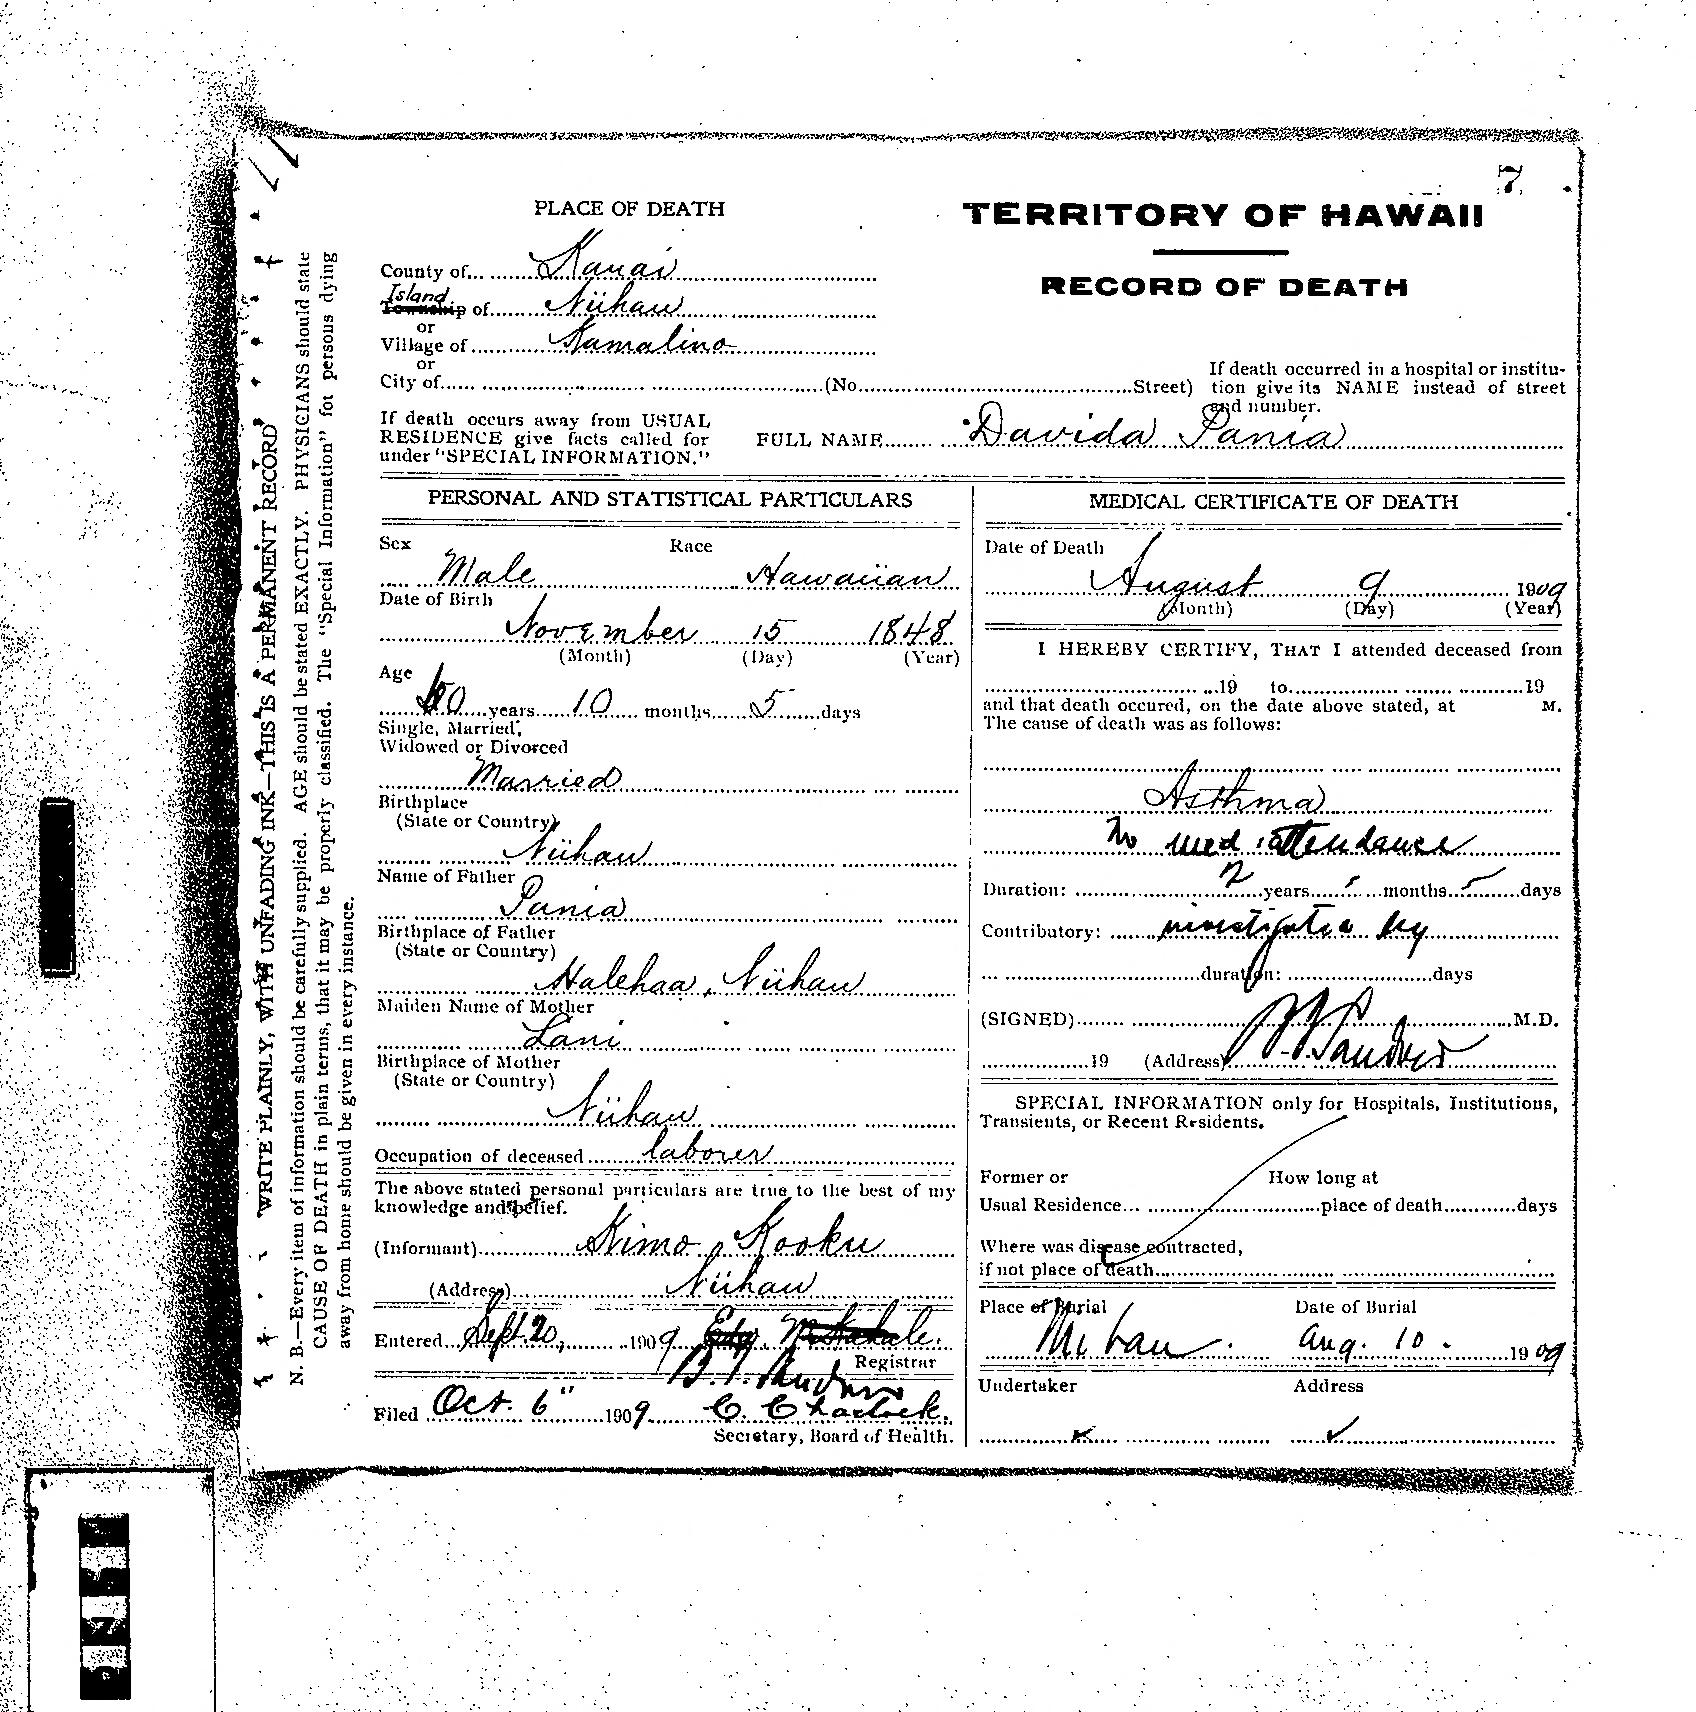 7
PLACE OF DEATH
TERRITORY OF HAWAII
RECORD OF DEATH
County of Kauai
Island
Township of Niihau
or
Village of Kamalino
or
City of (No. Street)
If death occurred in a hospital or institu-
tion give its NAME instead of street
and number.
If death occurs away from USUAL
RESIDENCE give facts called for
under "SPECIAL INFORMATION."
FULL NAME Davida Pania
WRITE PLAINLY, WITH UNFADING INK—THIS IS A PERMANENT RECORD
N. B.—Every item of information should be carefully supplied. AGE should be stated EXACTLY. PHYSICIANS should state
CAUSE OF DEATH in plain terms, that it may be properly classified. The "Special Information" fot persons dying
away from home should be given in every instance.
PERSONAL AND STATISTICAL PARTICULARS
Sex Race
Male Hawaiian
Date of Birth
November 15 1848
(Month) (Day) (Year)
Age
60 years 10 months 5 days
Single, Married,
Widowed or Divorced
Married
Birthplace
(State or Country)
Niihau
Name of Father
Pania
Birthplace of Father
(State or Country)
Halehaa, Niihau
Maiden Name of Mother
Lani
Birthplace of Mother
(State or Country)
Niihau
Occupation of deceased laborer
The above stated personal particulars are true to the best of my
knowledge and belief.
(Informant) Kimo Kooku
(Address) Niihau
Entered Sept. 20, 1909
Registrar
Filed Oct. 6" 1909
Secretary, Board of Health.
MEDICAL CERTIFICATE OF DEATH
Date of Death
August 9 1909
(Month) (Day) (Year)
I HEREBY CERTIFY, THAT I attended deceased from
19 to 19
and that death occured, on the date above stated, at M.
The cause of death was as follows:
Asthma
No med. attendance
Duration: 2 years months days
Contributory: by
duration: days
(SIGNED) M.D.
19 (Address)
SPECIAL INFORMATION only for Hospitals, Institutions,
Transients, or Recent Residents.
Former or How long at
Usual Residence place of death days
Where was disease contracted,
if not place of death
Place of Burial Date of Burial
Niihau. Aug. 10. 1909
Undertaker Address